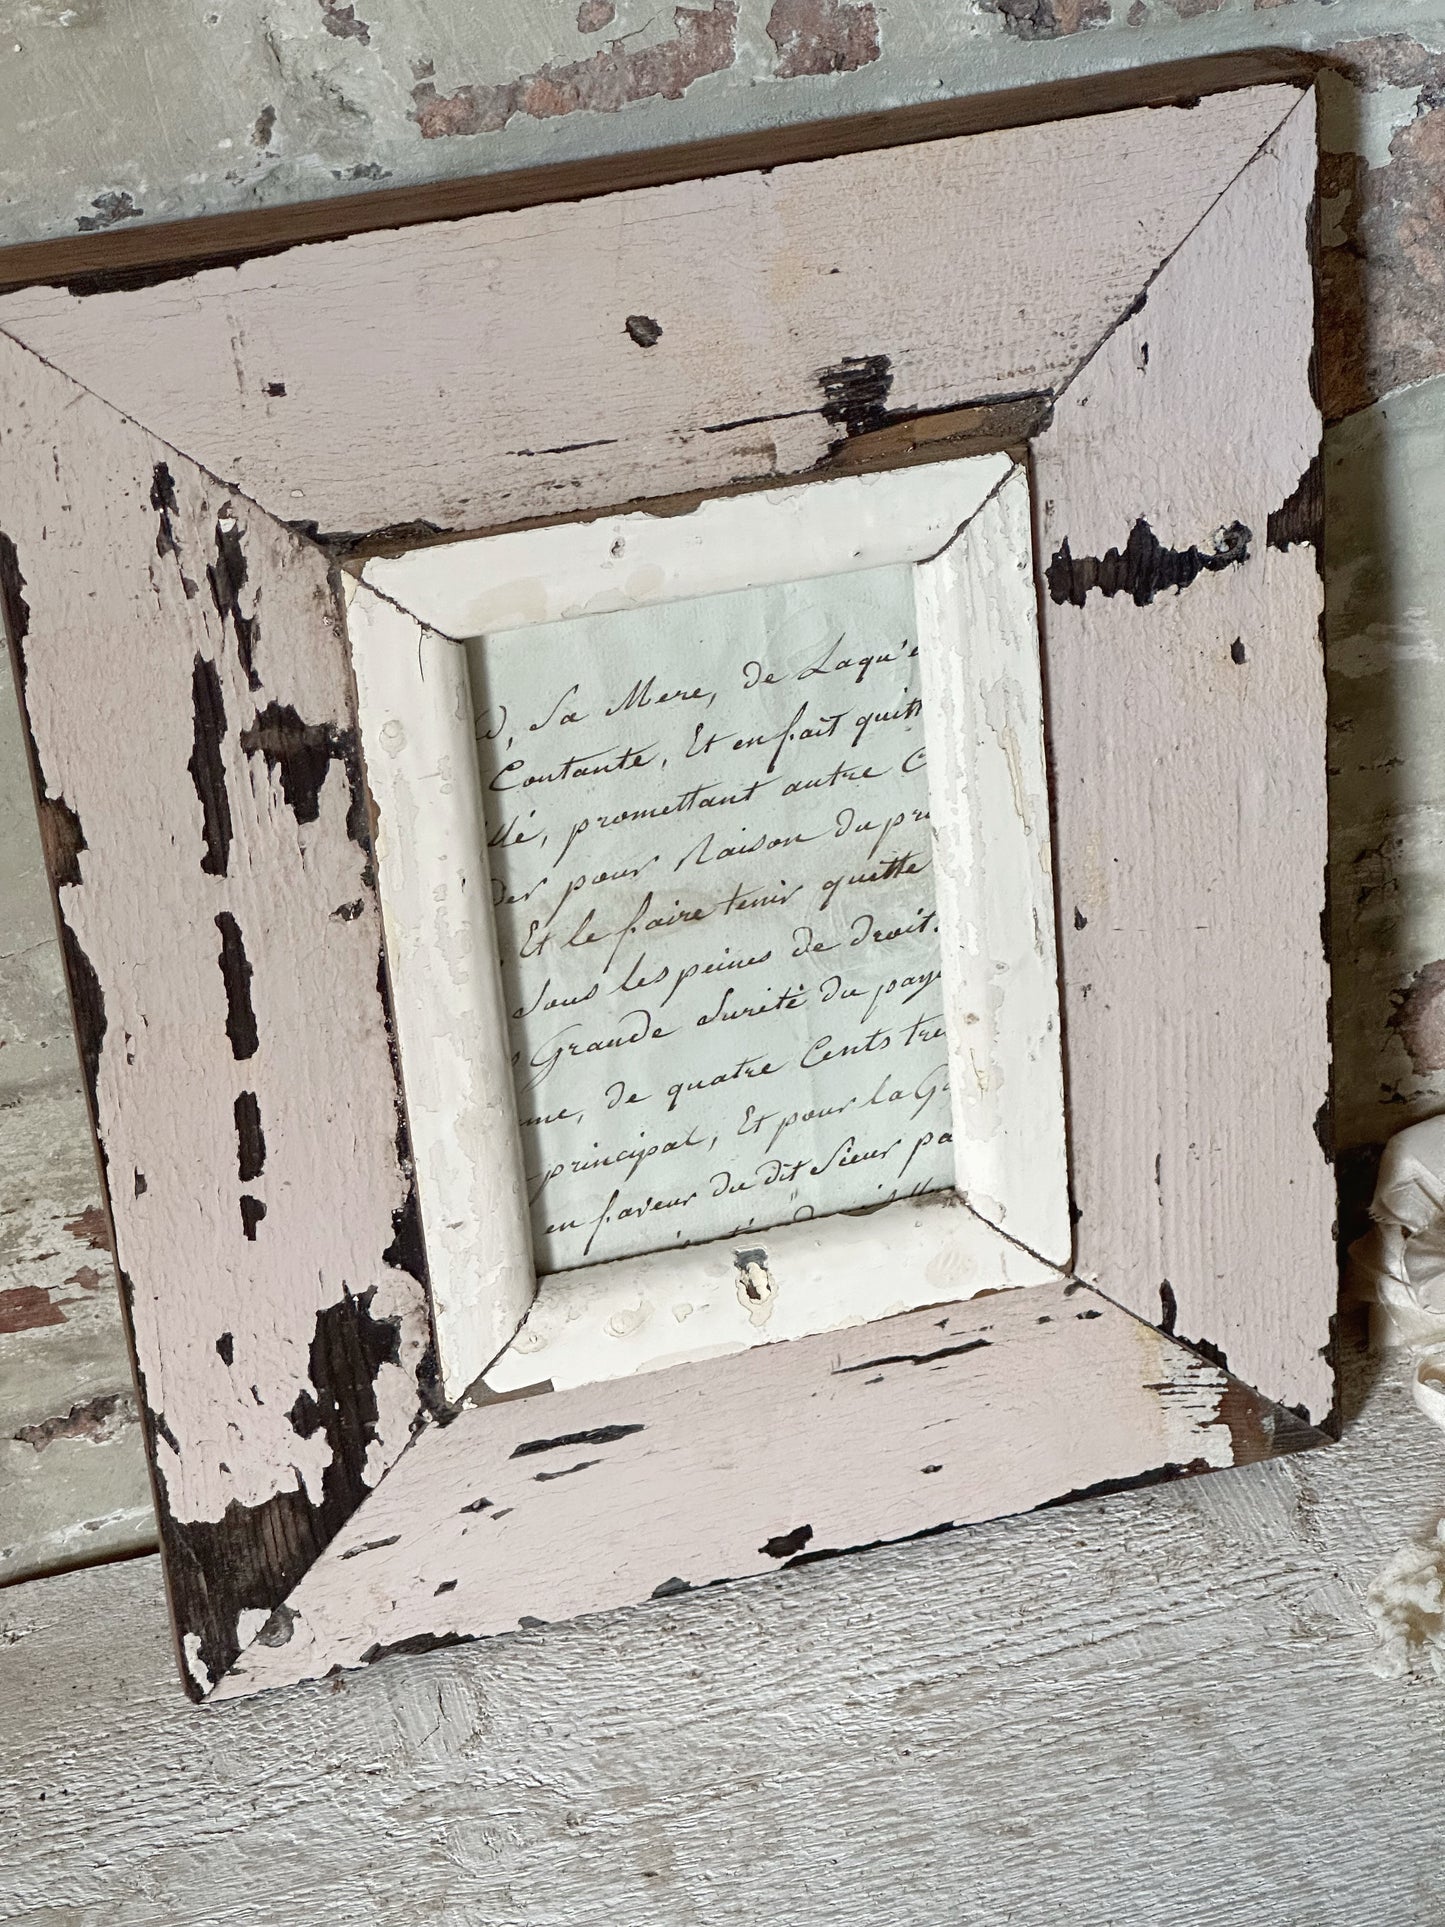 d, Sa Mere, de Laqu'e
Contante, Et en fait quitt
llé, promettant autre C
der pour Raison du pr
Et le faire tenir quitte
Sous les peines de droit.
Grande Sureté du paye
me, de quatre Cents tre
principal, Et pour la G
en faveur du dit Sieur pa